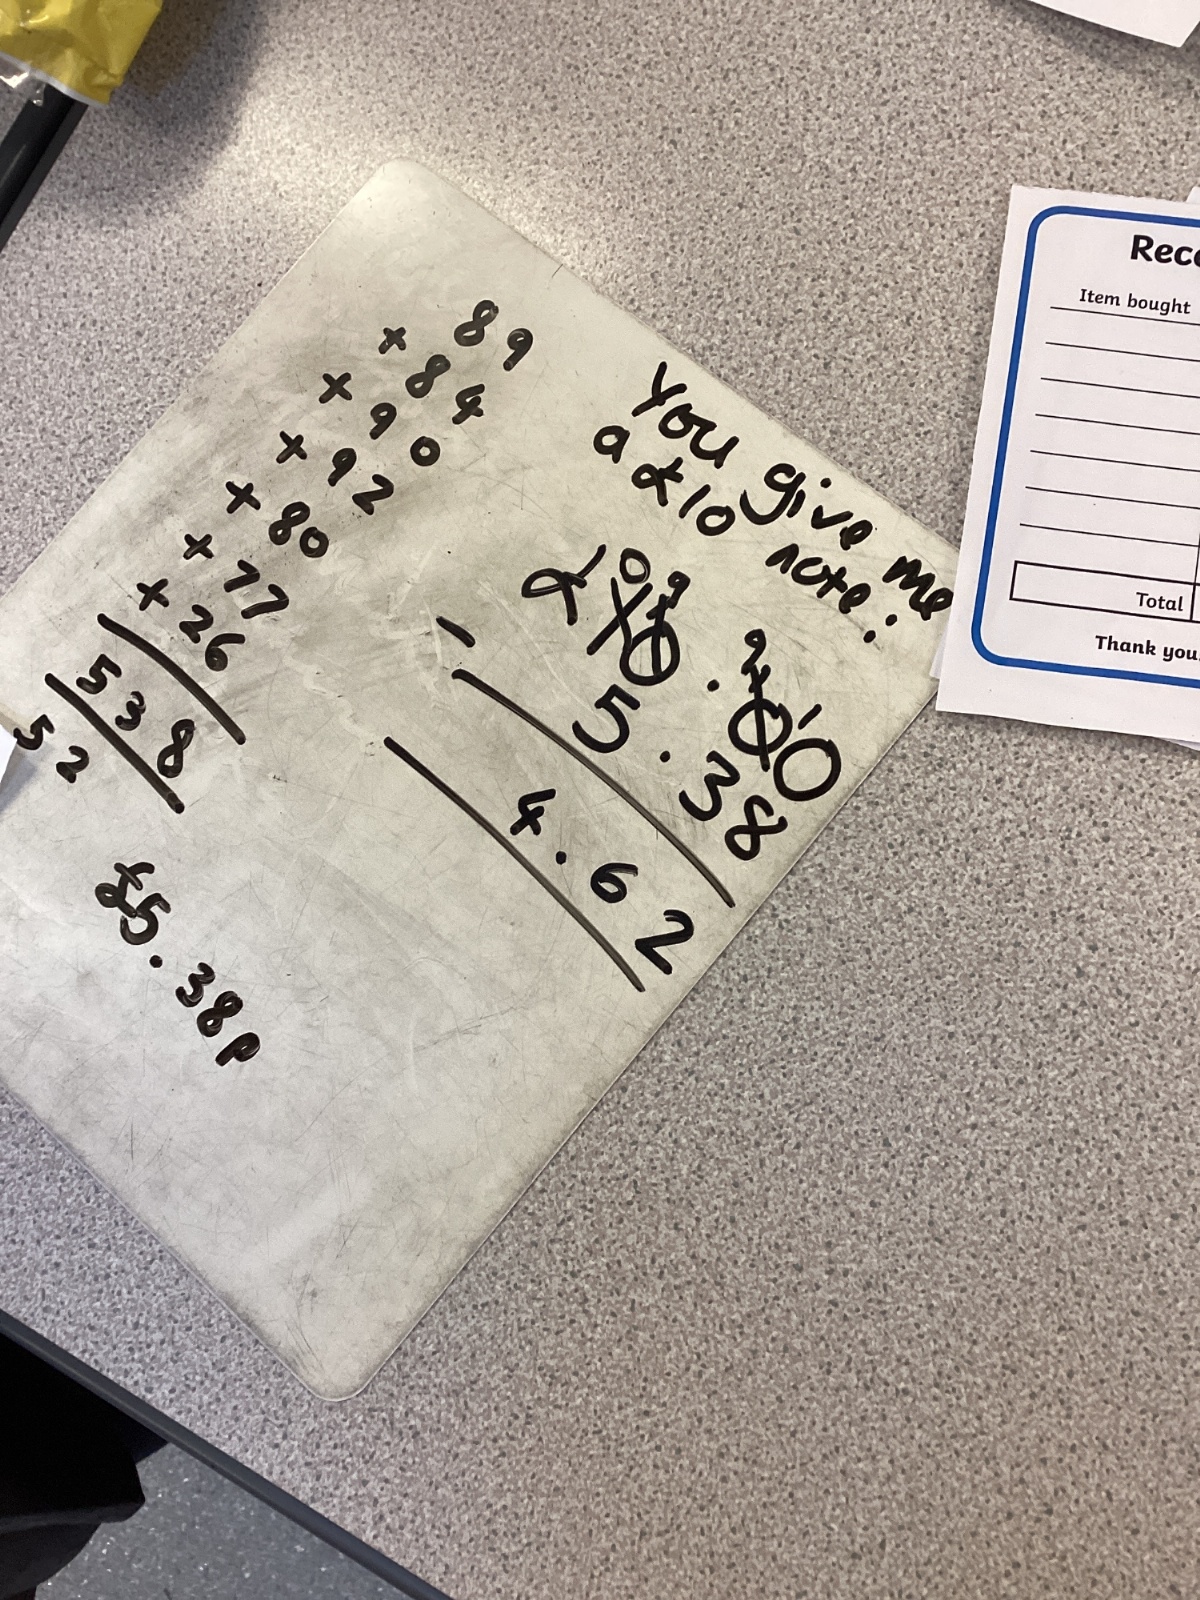 89
+ 84
+ 90
+ 92
+ 80
+ 77
+ 26
538
52
£5.38p
You give me
a £10 note:
£10.00
- 5.38
4.62
Item bought
Total
Thank you